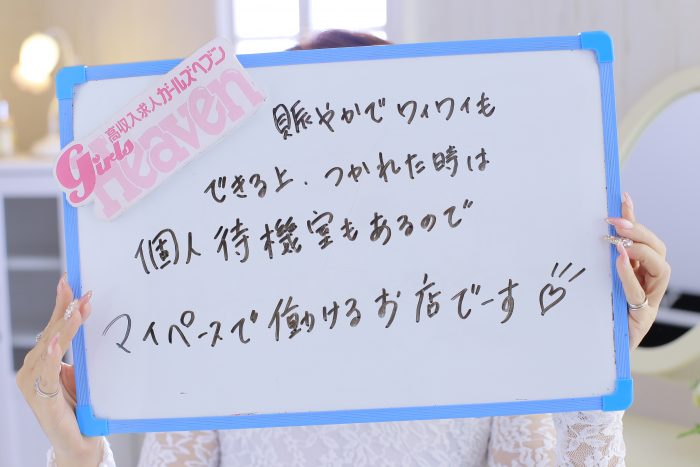 高収入求人ガールズヘブン
Girls
Heaven
賑やかでワイワイも
できる上、つかれた時は
個人待機室もあるので
マイペースで働けるお店でーす♡